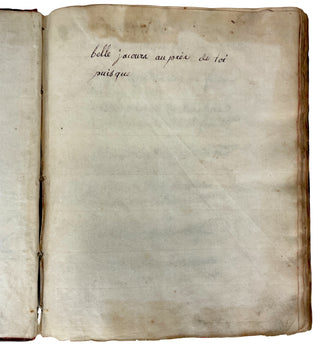 belle j'acours au près de toi
puisque